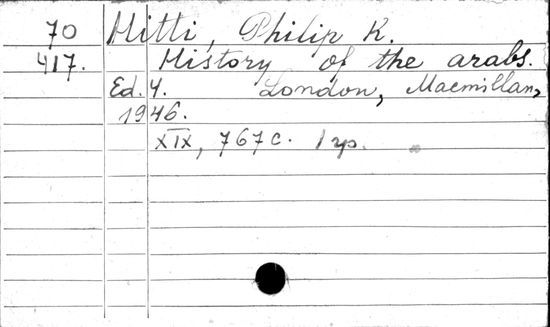 70 Hitti, Philip K.
417. History of the arabs.
Ed. 4. London, Macmillan,
1946.
XIX, 767 c. 1 yp.